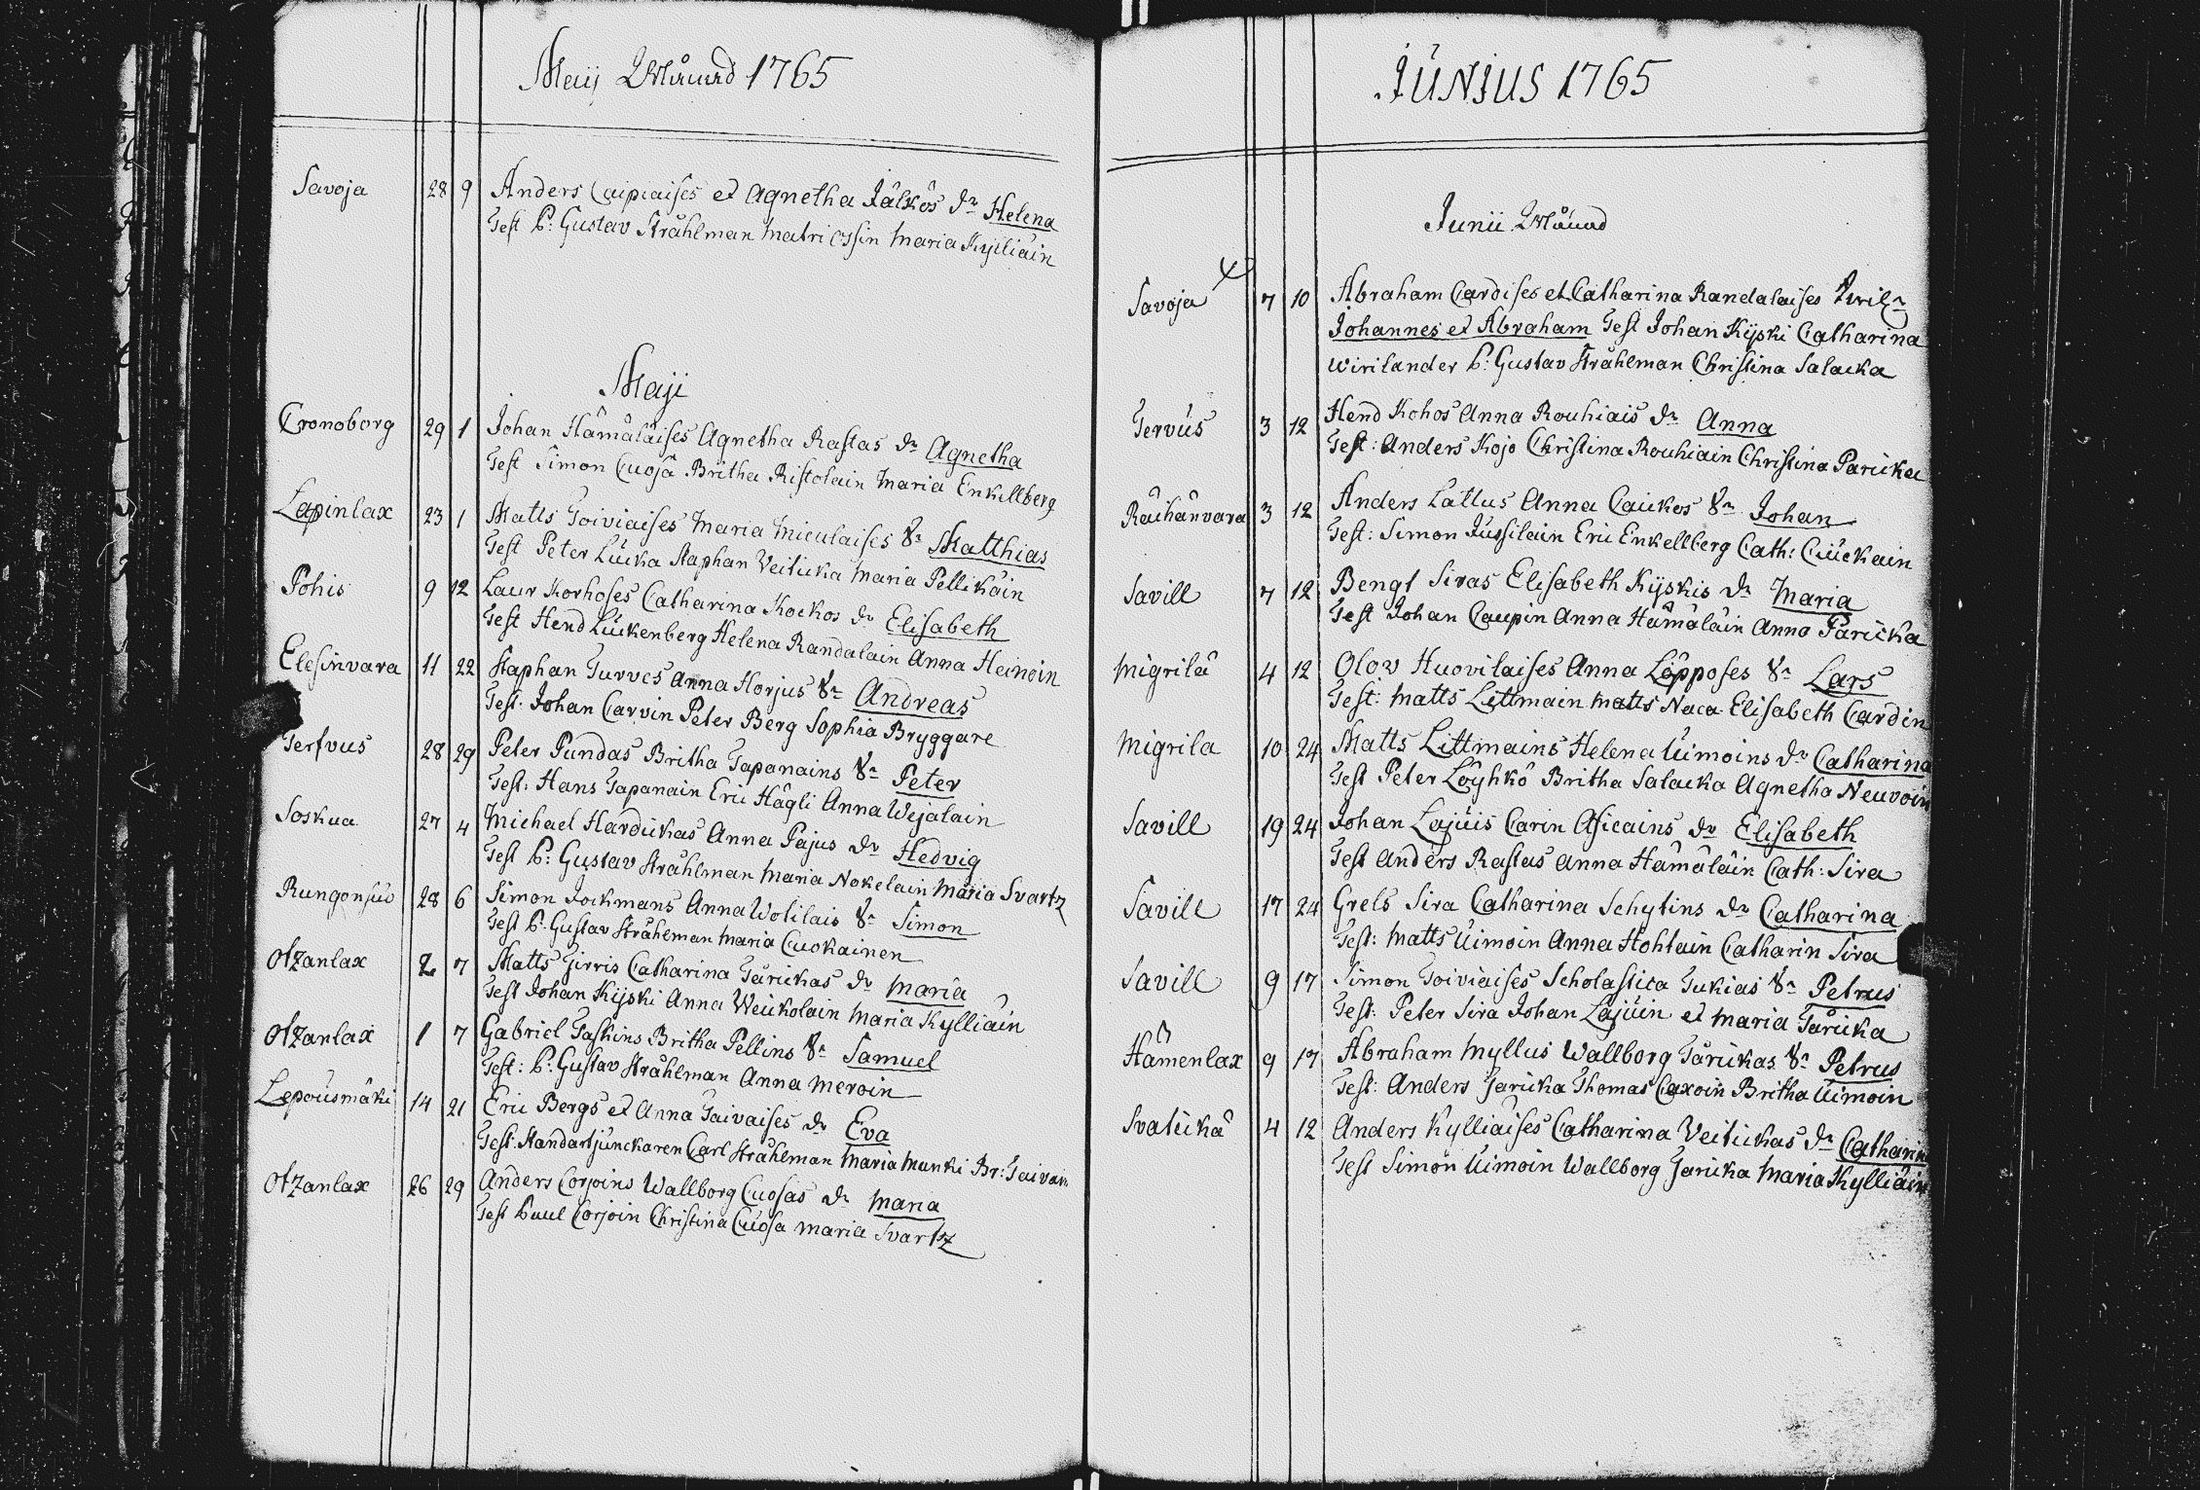 Maij Månad 1765
Savoja 28 9 Anders Caipiaises et Agnetha Jålkös dr Helena
Test P: Gustav Stråhlman Matri Ossin Maria Kylliäin
Maji
Cronoborg 29 1 Johan Hämäläises Agnetha Rastas dr Agnetha
Test Simon Cuosa Britha Ristolain Maria Enkellberg
Lapinlax 23 1 Matts Toiviaises Maria Miculaises Sn Matthias
Test Peter Lucka Staphan Veiticka Maria Pellikäin
Pohis 9 12 Laur Korhoses Catharina Kockos dr Elisabeth
Test Hend Lückenberg Helena Randalain Anna Heinoin
Elesinvara 11 22 Staphan Turves Anna Horjus Sn Andreas
Test. Johan Carvin Peter Berg Sophia Bryggare
Terfvus 28 29 Peter Pundas Britha Tapanains Sn Peter
Test: Hans Tapanain Eric Hägli Anna Wejalain
Soskua 27 4 Michael Hardickas Anna Pajus dr Hedvig
Test P: Gustav Stråhlman Maria Nokelain Maria Svartz
Rungonsuo 28 6 Simon Jockmans Anna Wolilais Sn Simon
Test P: Gustav Stråhlman Maria Cuokainen
Otzanlax 2 7 Matts Jirris Catharina Tarickas dr Maria
Test Johan Kijski Anna Weickolain Maria Kylliäin
Otzanlax 1 7 Gabriel Taskins Britha Pellins Sn Samuel
Test: P: Gustav Stråhlman Anna Meroin
Lepousmäki 14 21 Eric Bergs et Anna Taivaises dr Eva
Test: Standartjunckaren Carl Stråhlman Maria Munki Br: Taivain
Otzanlax 26 29 Anders Corjoins Wallborg Cuosas dr Maria
Test Paul Corjoin Christina Cuosa Maria Svartz
JÚNJUS 1765
Junii Månad
Savoja 7 10 Abraham Cardises et Catharina Randalaises Tvil
Johannes et Abraham Test Johan Kijski Catharina
Wirilander P: Gustav Stråhlman Christina Salacka
Tervus 3 12 Hend Kohos Anna Rouhiais dr Anna
Test: Anders Kojo Christina Rouhiain Christina Paricka
Räihänvara 3 12 Anders Lattus Anna Caickos Sn Johan
Test: Simon Jussilain Eric Enkellberg Cath: Cuckain
Savill 7 12 Bengt Siras Elisabeth Kijskis dr Maria
Test Johan Caupin Anna Hämäläin Anna Paricka
Migrilä 4 12 Olov Huovilaises Anna Löpposes Sn Lars
Test: Matts Littmain Matts Naca Elisabeth Cardin
Migrila 10 24 Matts Littmains Helena Uimoins dr Catharina
Test Peter Löyhkö Britha Salacka Agnetha Neuvoin
Savill 19 24 Johan Lajuis Carin Asicains dr Elisabeth
Test Anders Rastas Anna Hämäläin Cath: Sira
Savill 17 24 Grels Sira Catharina Schytins dr Catharina
Test: Matts Uimoin Anna Hohtain Catharin Sira
Savill 9 17 Simon Toiviaises Scholastica Tukiai Sn Petrus
Test: Peter Sira Johan Lajuin et Maria Taricka
Hämenlax 9 17 Abraham Myllus Wallborg Tarickas Sn Petrus
Test: Anders Jaricka Thomas Caxoin Britha Uimoin
Svatickä 4 12 Anders Kylliaises Catharina Veitickas dr Catharin
Test Simon Uimoin Wallborg Jaricka Maria Kylliäin